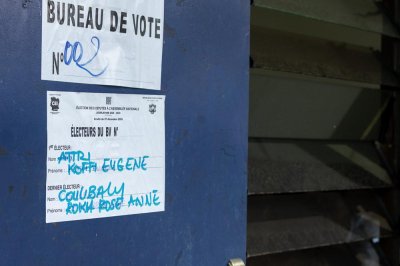 BUREAU DE VOTE
N° 002
ELECTION DES DEPUTES A L'ASSEMBLEE NATIONALE
ÉLECTEURS DU BV N°
1ER ÉLECTEUR:
Nom :
Prénoms : KOFFI EUGENE
DERNIER ÉLECTEUR:
Nom : COULIBALY
Prénoms : ROKIA ROSE ANNE